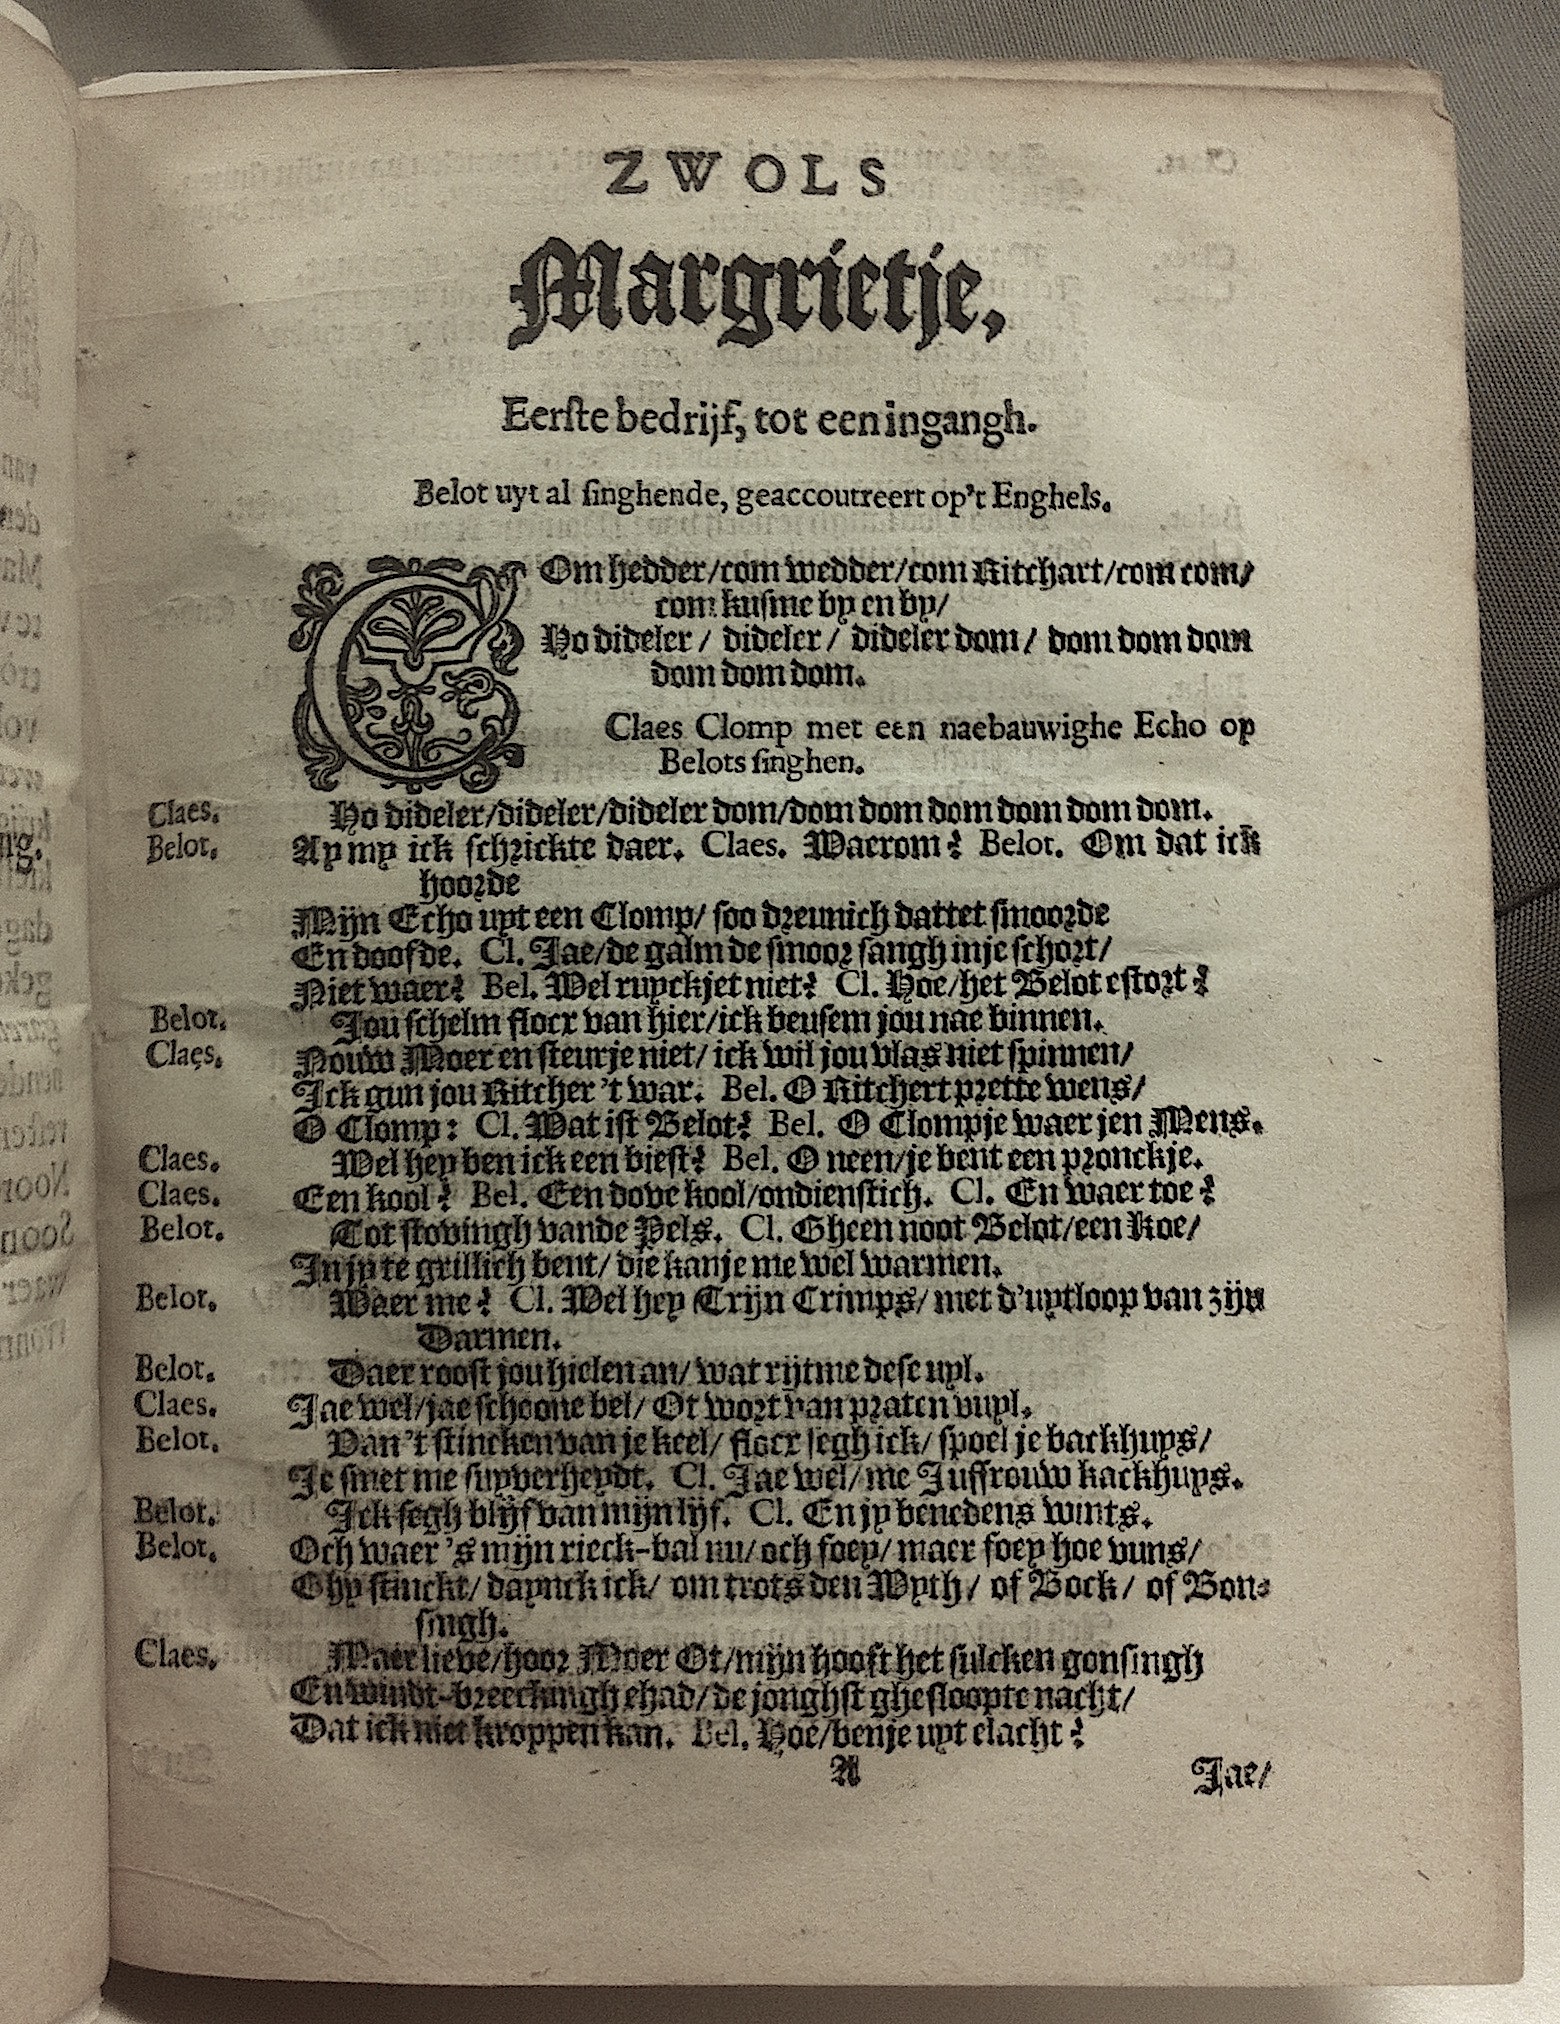 ZWOLS
Margrietje,
Eerſte bedrijf, tot een ingangh.
Belot uyt al ſinghende, geaccoutreert op't Enghels.
COm hedder/com wedder/com Ritchart/com com/
com kuſme by en by/
Ho dideler / dideler / dideler dom / dom dom dom
dom dom dom.
Claes Clomp met een naebauwighe Echo op
Belots ſinghen.
Claes. Ho dideler/dideler/dideler dom/dom dom dom dom dom dom.
Belot. Ay my ick ſchrickte daer. Claes. Waerom? Belot. Om dat ick
hoorde
Mijn Echo uyt een Clomp/ ſoo dreunich dattet ſmoorde
En doofde. Cl. Jae/de galm de ſmoor ſangh inje ſchort/
Niet waer? Bel. Wel ruyckjet niet? Cl. Hoe/het Belot eſtort?
Belot. Jou ſchelm flocx van hier/ick beuſem jou nae binnen.
Claes. Nouw Moer en ſteurje niet/ ick wil jou vlas niet ſpinnen/
Ick gun jou Ritcher 't war. Bel. O Ritchert prette wens/
O Clomp: Cl. Wat iſt Belot? Bel. O Clompje waer jen Mens.
Claes. Wel hey ben ick een bieſt? Bel. O neen/je bent een pronckje.
Claes. Een kool? Bel. Een dove kool/ondienſtich. Cl. En waer toe?
Belot. Tot ſtovingh vande Pels. Cl. Gheen noot Belot/een Koe/
In jy te grillich bent/ die kanje me wel warmen.
Belot. Waer me? Cl. Wel hey Crijn Crimps/ met d'uytloop van zijn
Darmen.
Belot. Daer rooſt jou hielen an/ wat rijtme deſe uyl.
Claes. Jae wel/jae ſchoone bel/ Ot wort van praten vuyl.
Belot. Van 't ſtincken van je keel/ flocx ſegh ick/ ſpoel je backhuys/
Je ſmet me ſuyverheydt. Cl. Jae wel/ me Juffrouw kackhuys.
Belot. Ick ſegh blijf van mijn lijf. Cl. En jy benedens wints.
Belot. Och waer 's mijn rieck-bal nu/ och foey/ maer foey hoe vuns/
Ghy ſtinckt/ daynck ick/ om trots den Wyth/ of Bock/ of Bon-
ſingh.
Claes. Maer lieve/hoor Moer Ot/mijn hooft het ſulcken gonſingh
En windt-breeckingh ehad/de jonghſt gheſloopte nacht/
Dat ick niet kroppen kan. Bel. Hoe/benje uyt elacht?
A Jae/